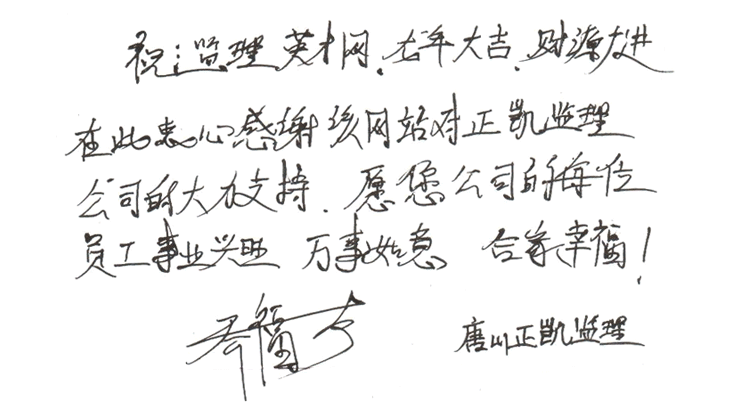 祝：监理英才网，龙年大吉，财源大进
在此忠心感谢该网站对正凯监理
公司的大力支持．愿您公司的每位
员工事业兴旺 万事如意 合家幸福！
唐山正凯监理